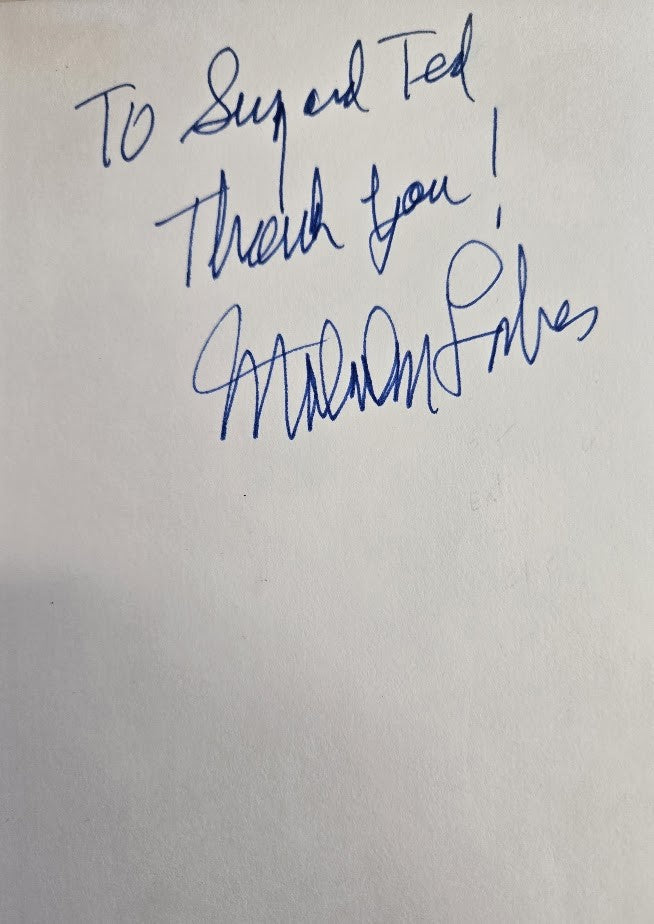 To Suz and Ted
Thank you!
Malcolm Forbes